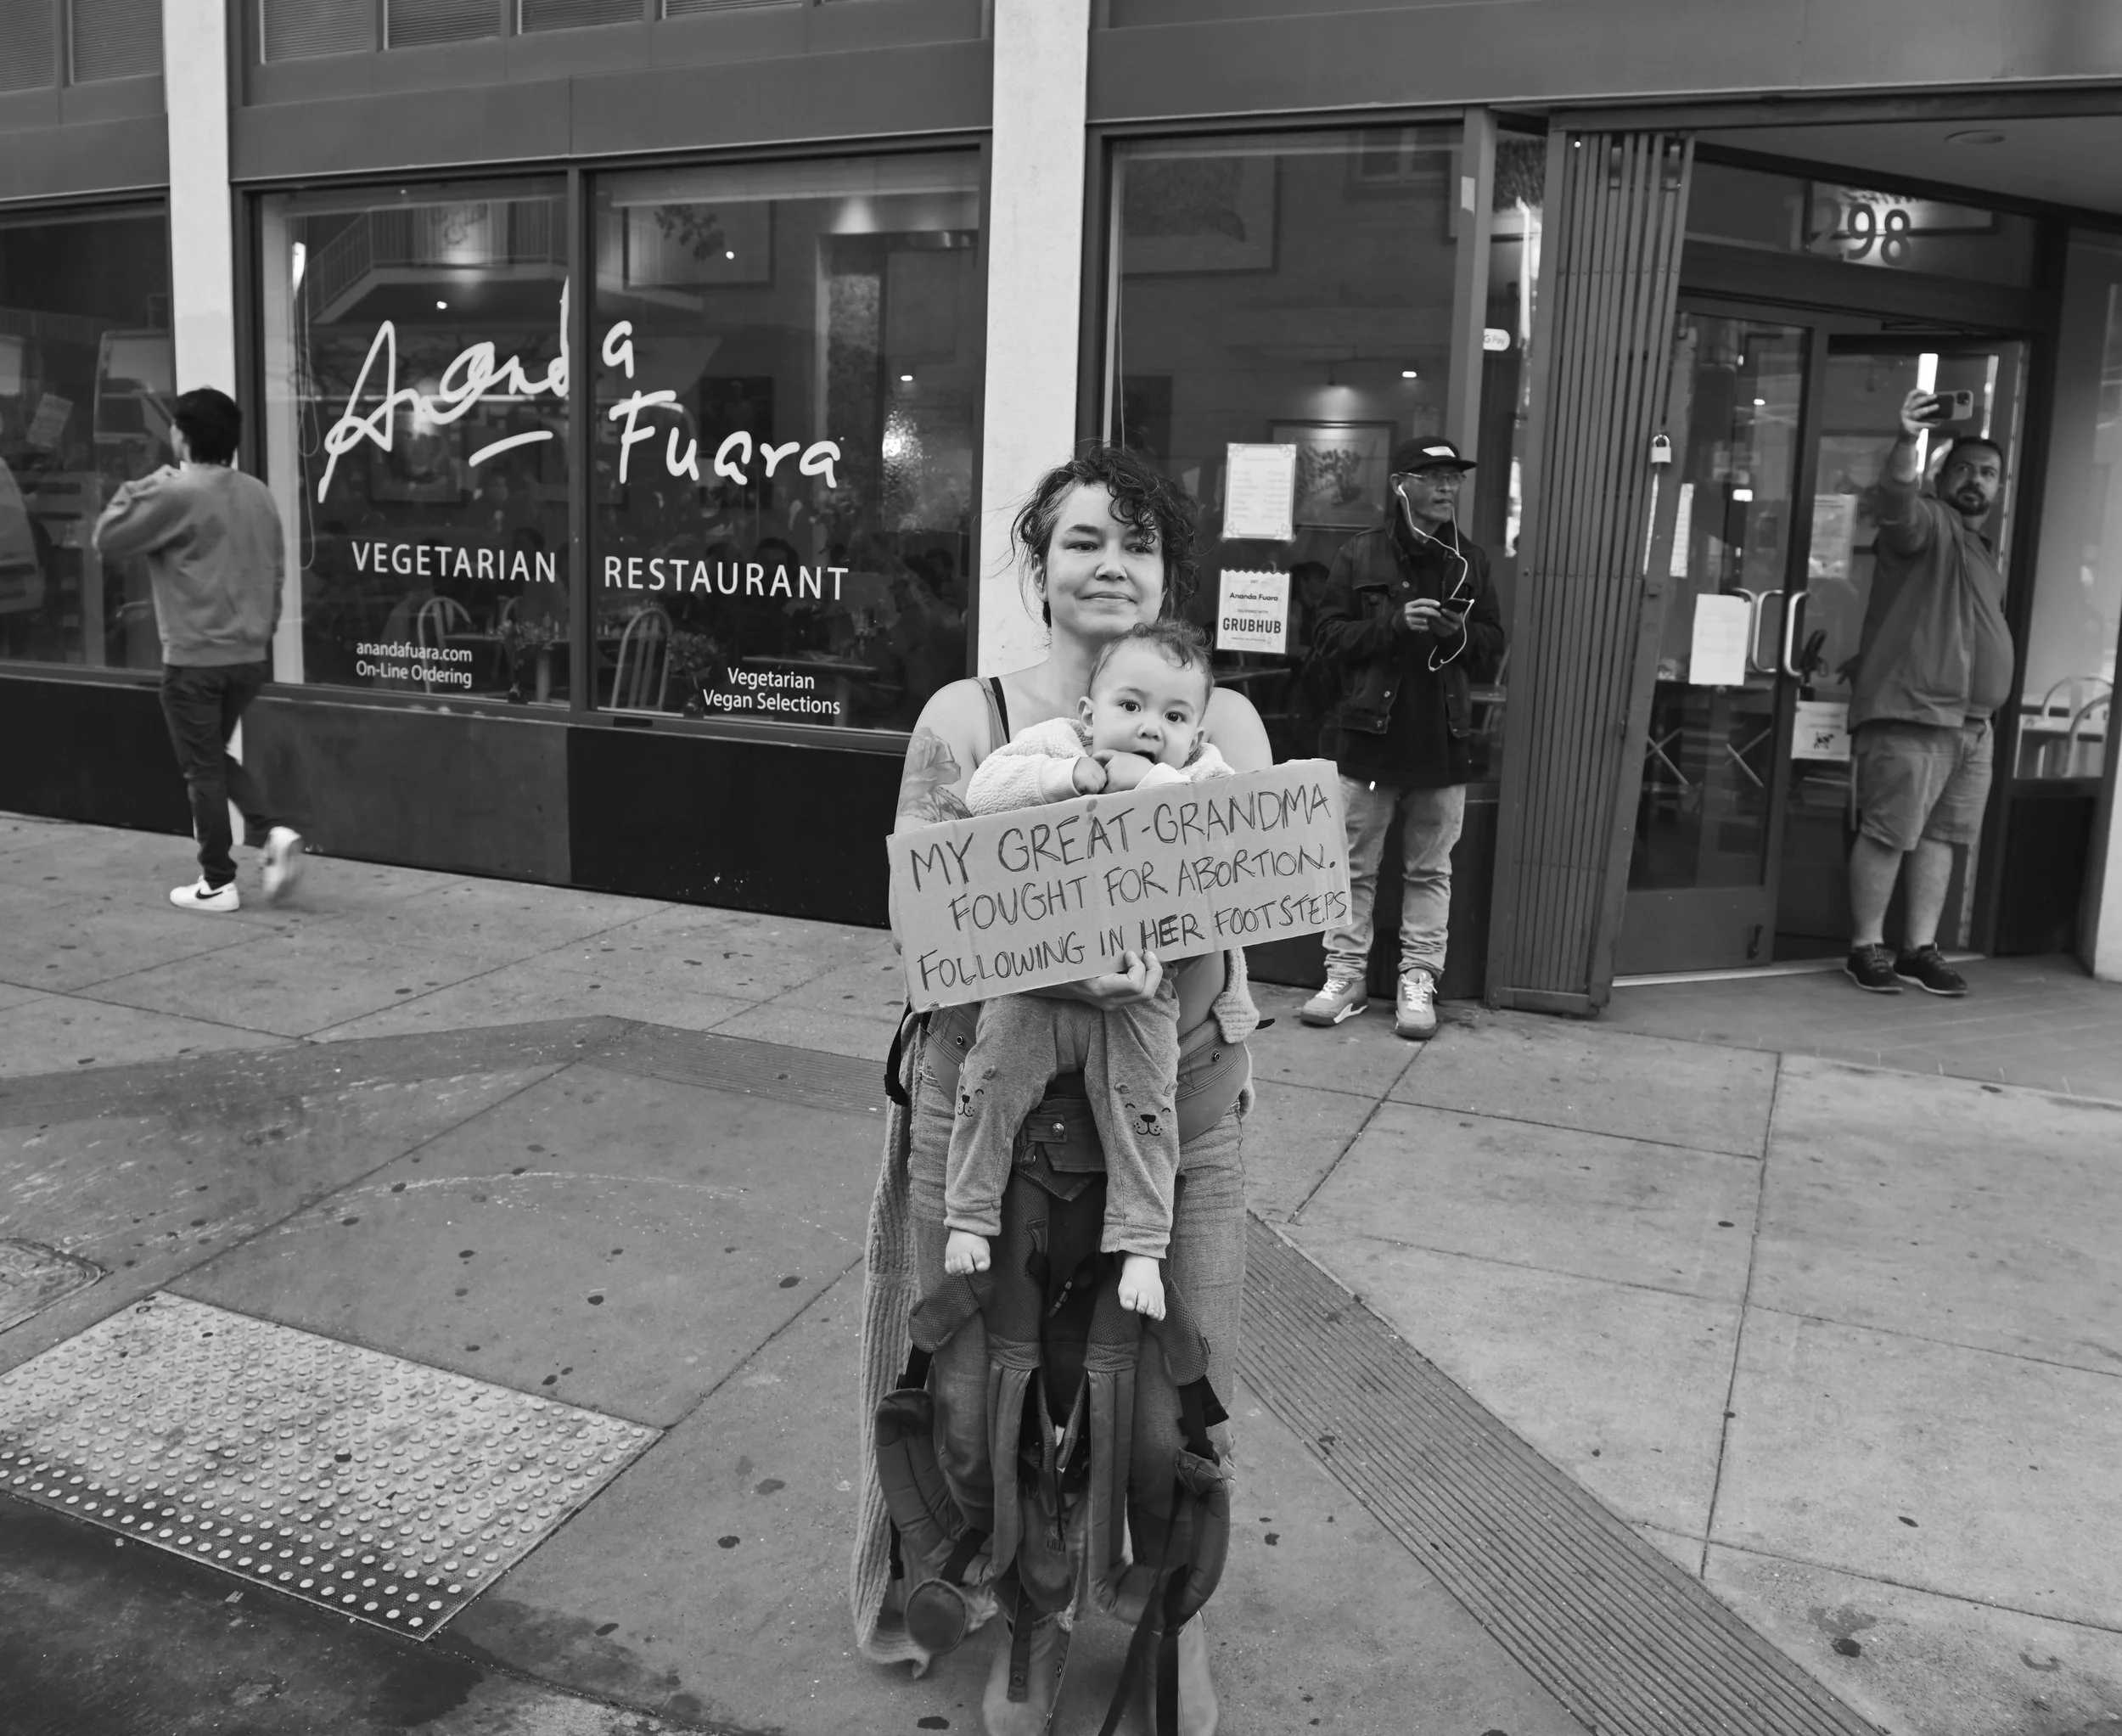 Ananda
Fuara
VEGETARIAN RESTAURANT
anandafuara.com
On-Line Ordering
Vegetarian
Vegan Selections
Ananda Fuara
GRUBHUB
G Pay
1298
MY GREAT-GRANDMA
FOUGHT FOR ABORTION.
FOLLOWING IN HER FOOTSTEPS